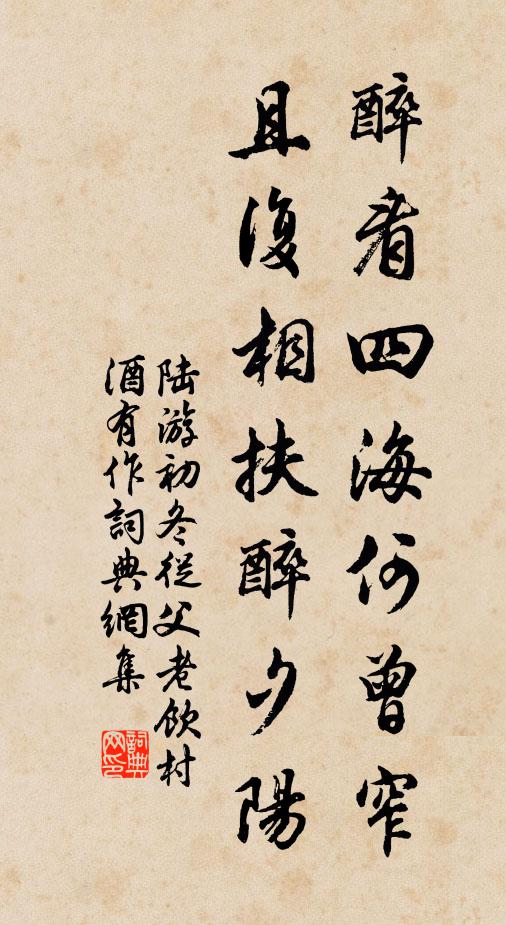 醉看四海何曾窄
且復相扶醉夕陽
陆游初冬從父老飲村
酒有作詞典網集
詞典網印